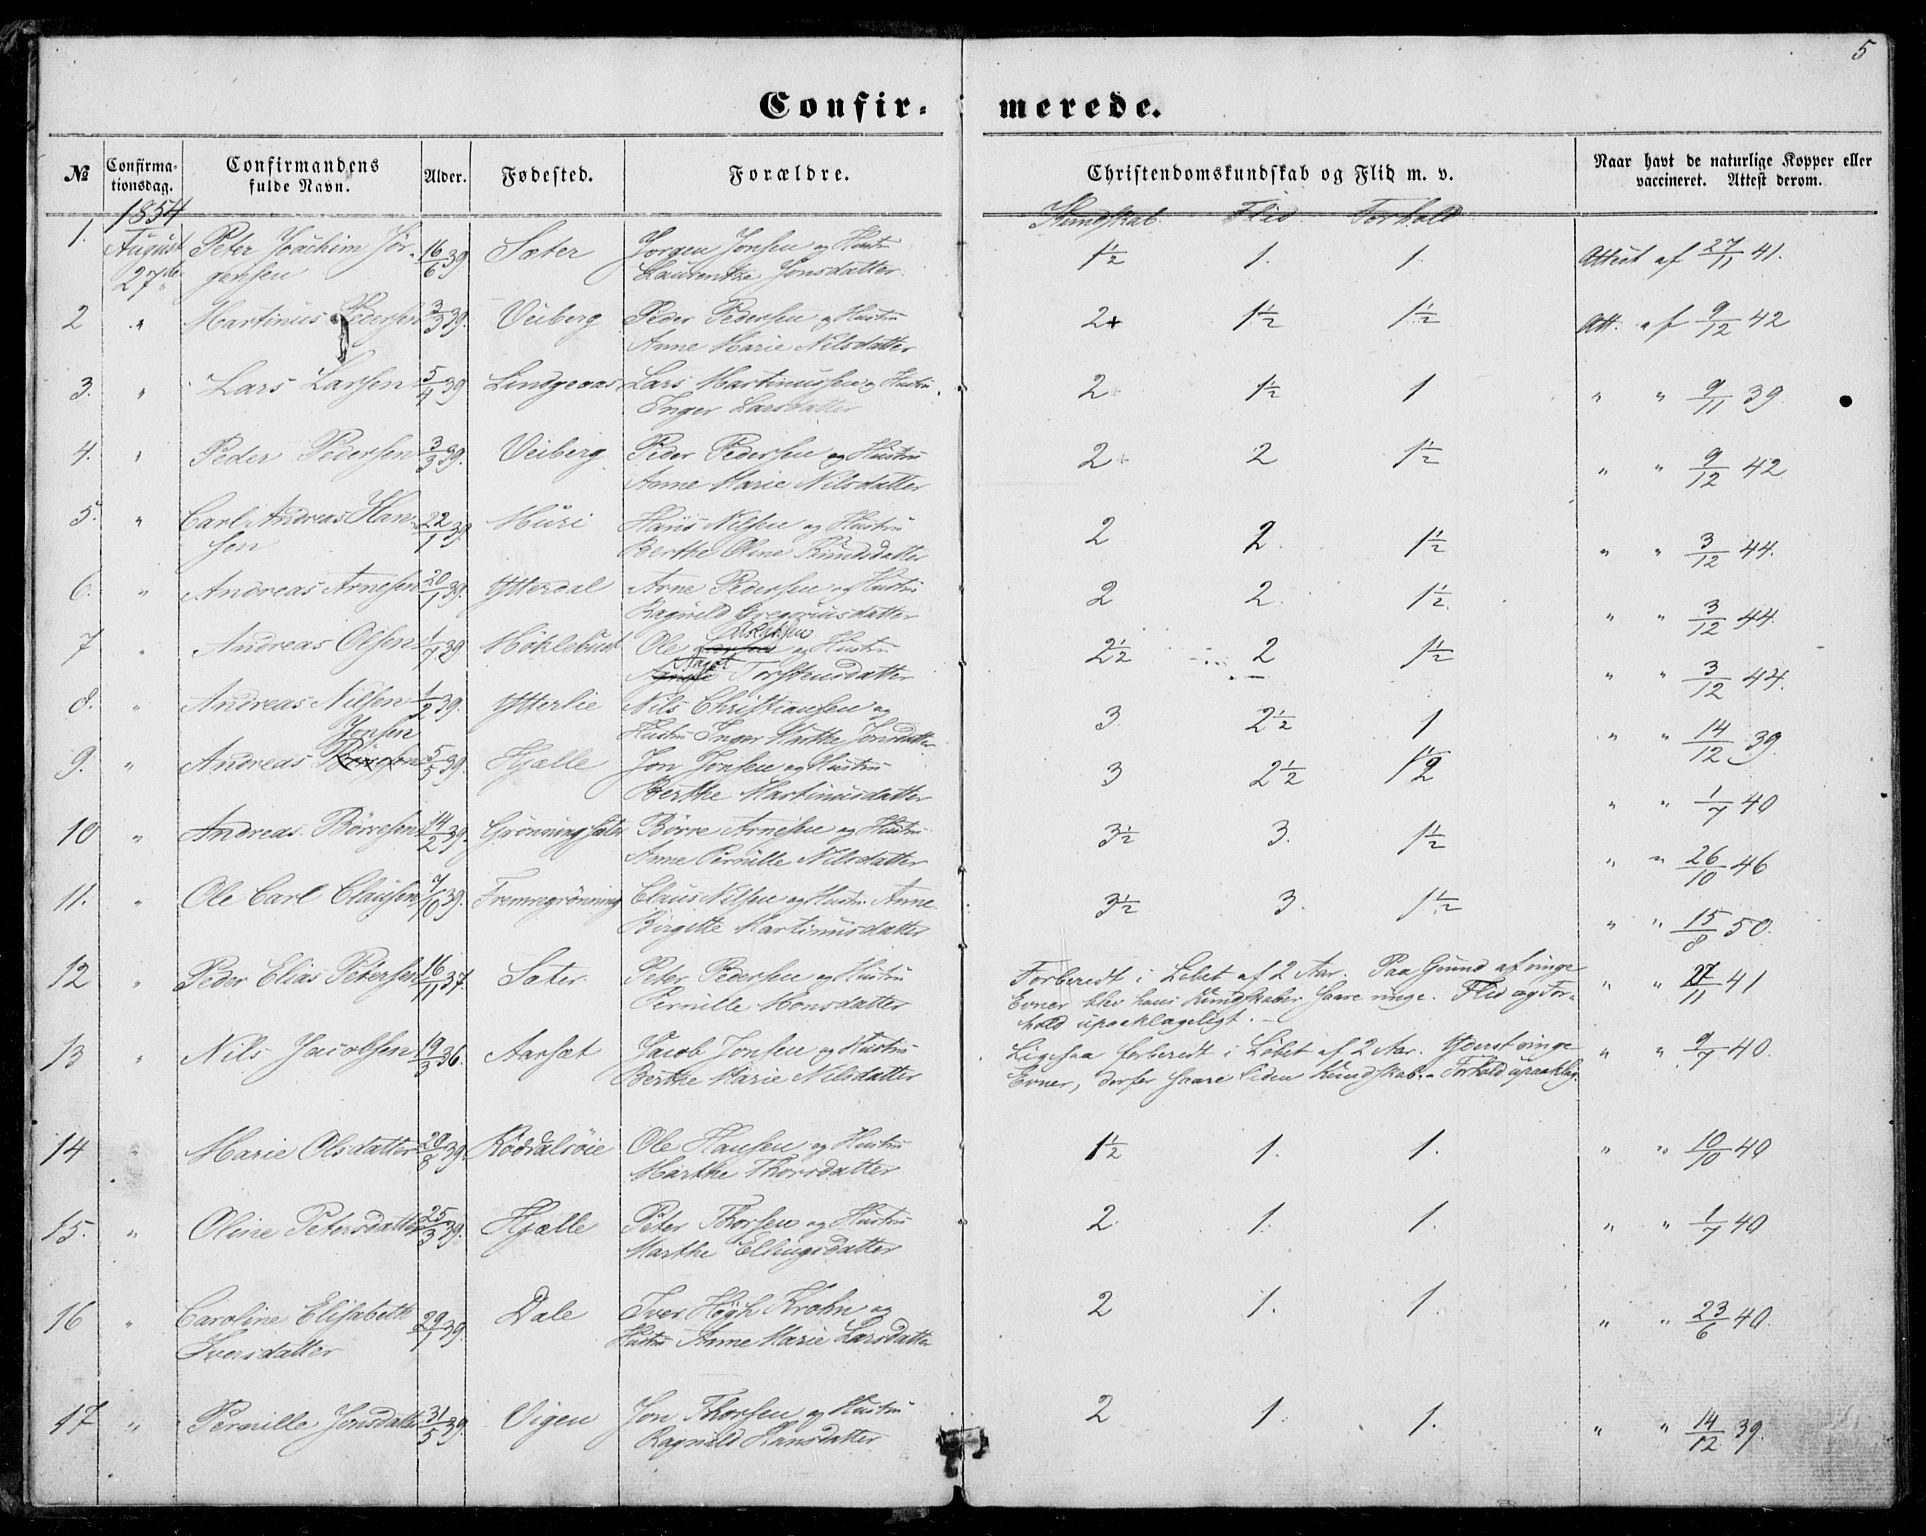 5
Confir- merede.
№ Confirma- Confirmandens Alder. Fødested. Forældre. Christendomskundskab og Flid m. v. Naar havt de naturlige Kopper eller
tionsdag. fulde Navn. vaccineret. Attest derom.
1854 Kundskab. Flid Forhold
1. August Peter Joachim Jör- 16/6 39 Sæter Jørgen Jonsen og Hustru 1½ 1. 1. Attest af 27/11 41.
27de gensen Laurentze Jonsdatter.
2 " Martinus Pedersen 3/3 39. Veiberg Peder Pedersen og Hustru 2+ 1½ 1½ Att. af 9/12 42
Anne Marie Nilsdatter
3. " Lars Larsen 5/4 39 Lars Martinussen og Hustru 2 1½ 1 " " 9/11 39
Inger Larsdatter
4. " Peder Pedersen 3/3 39. Veiberg Peder Pedersen og Hustru 2+ 2 1½ " " 9/12 42
Anne Marie Nilsdatter
5. " Carl Andreas Han- 22/1 39. Muri Hans Nilsen og Hustru 2 2. 1½ " " 3/12 44.
sen Berthe Oline Knudsdatter
6. " Andreas Arnesen 20/1 39. Ytterdal Arne Pedersen og Hustru 2 2. 1½. " " 3/12 44.
Ragnild Gregoriusdatter
7 " Andreas Olsen 1/7 39 Möklebust Ole og Hustru 2½ 2 1½ " " 3/12 44.
Torstensdatter
8. " Andreas Nilsen 1/2 39. Ytterlie Nils Christiansen og 3 2½ 1 " " 14/12 39
Hustru Inger Marthe Jonsdatter
Jonsen
9. " Andreas 5/5 39. Hjelle Jon Jonsen og Hustru 3 2½ 1½ " " 1/7 40
Berthe Martinusdatter
10 " Andreas Börresen 14/2 39. Grönningsæter Börre Arnesen og Hustru 3½ 3. 1½ " " 26/10 46
Anne Pernille Nilsdatter
11. " Ole Carl Clausen 7/10 39. Fremregrönning Claus Nilsen og Hustru Anne 3½ 3. 1½ " " 15/8 50.
Birgitte Martinusdatter
12 " Peder Elias Petersen 16/11 37. Sæter. Peter Pedersen og Hustru Forberedt i Løbet af 2 Aar. Paa Grund af ringe " " 27/11 41
Pernille Monsdatter Evner blev hans Kundskaber saare ringe. Flid og For-
hold upaaklageligt.
13 " Nils Jacobsen 19/3 36. Aarsæt Jacob Jonsen og Hustru Ligesaa forberedt i Løbet af 2 Aar. Yderst ringe " " 9/7 40.
Berthe Marie Nilsdatter Evner, derfor saare liden Kundskab. Forhold upaaklag.
14 " Marie Olsdatter 20/8 39. Röddalsöie Ole Hansen og Hustru 1½ 1. 1. " " 10/10 40
Marthe Thorsdatter
15. " Oline Petersdatter 25/3 39. Hjelle Peter Thorsen og Hustru 2 1. 1. " " 1/7 40
Marthe Ellingsdatter
16 " Caroline Elisabeth 29/1 39. Dale Iver Høgh Krohn og 2 1. 1. " " 23/6 40.
Iversdatter Hustru Anne Marie Larsdatter
17 " Pernille Jonsdatter 31/5 39. Vigen Jon Thorsen og Hustru 2 1. 1. " " 14/12 39.
Ragnild Hansdatter.